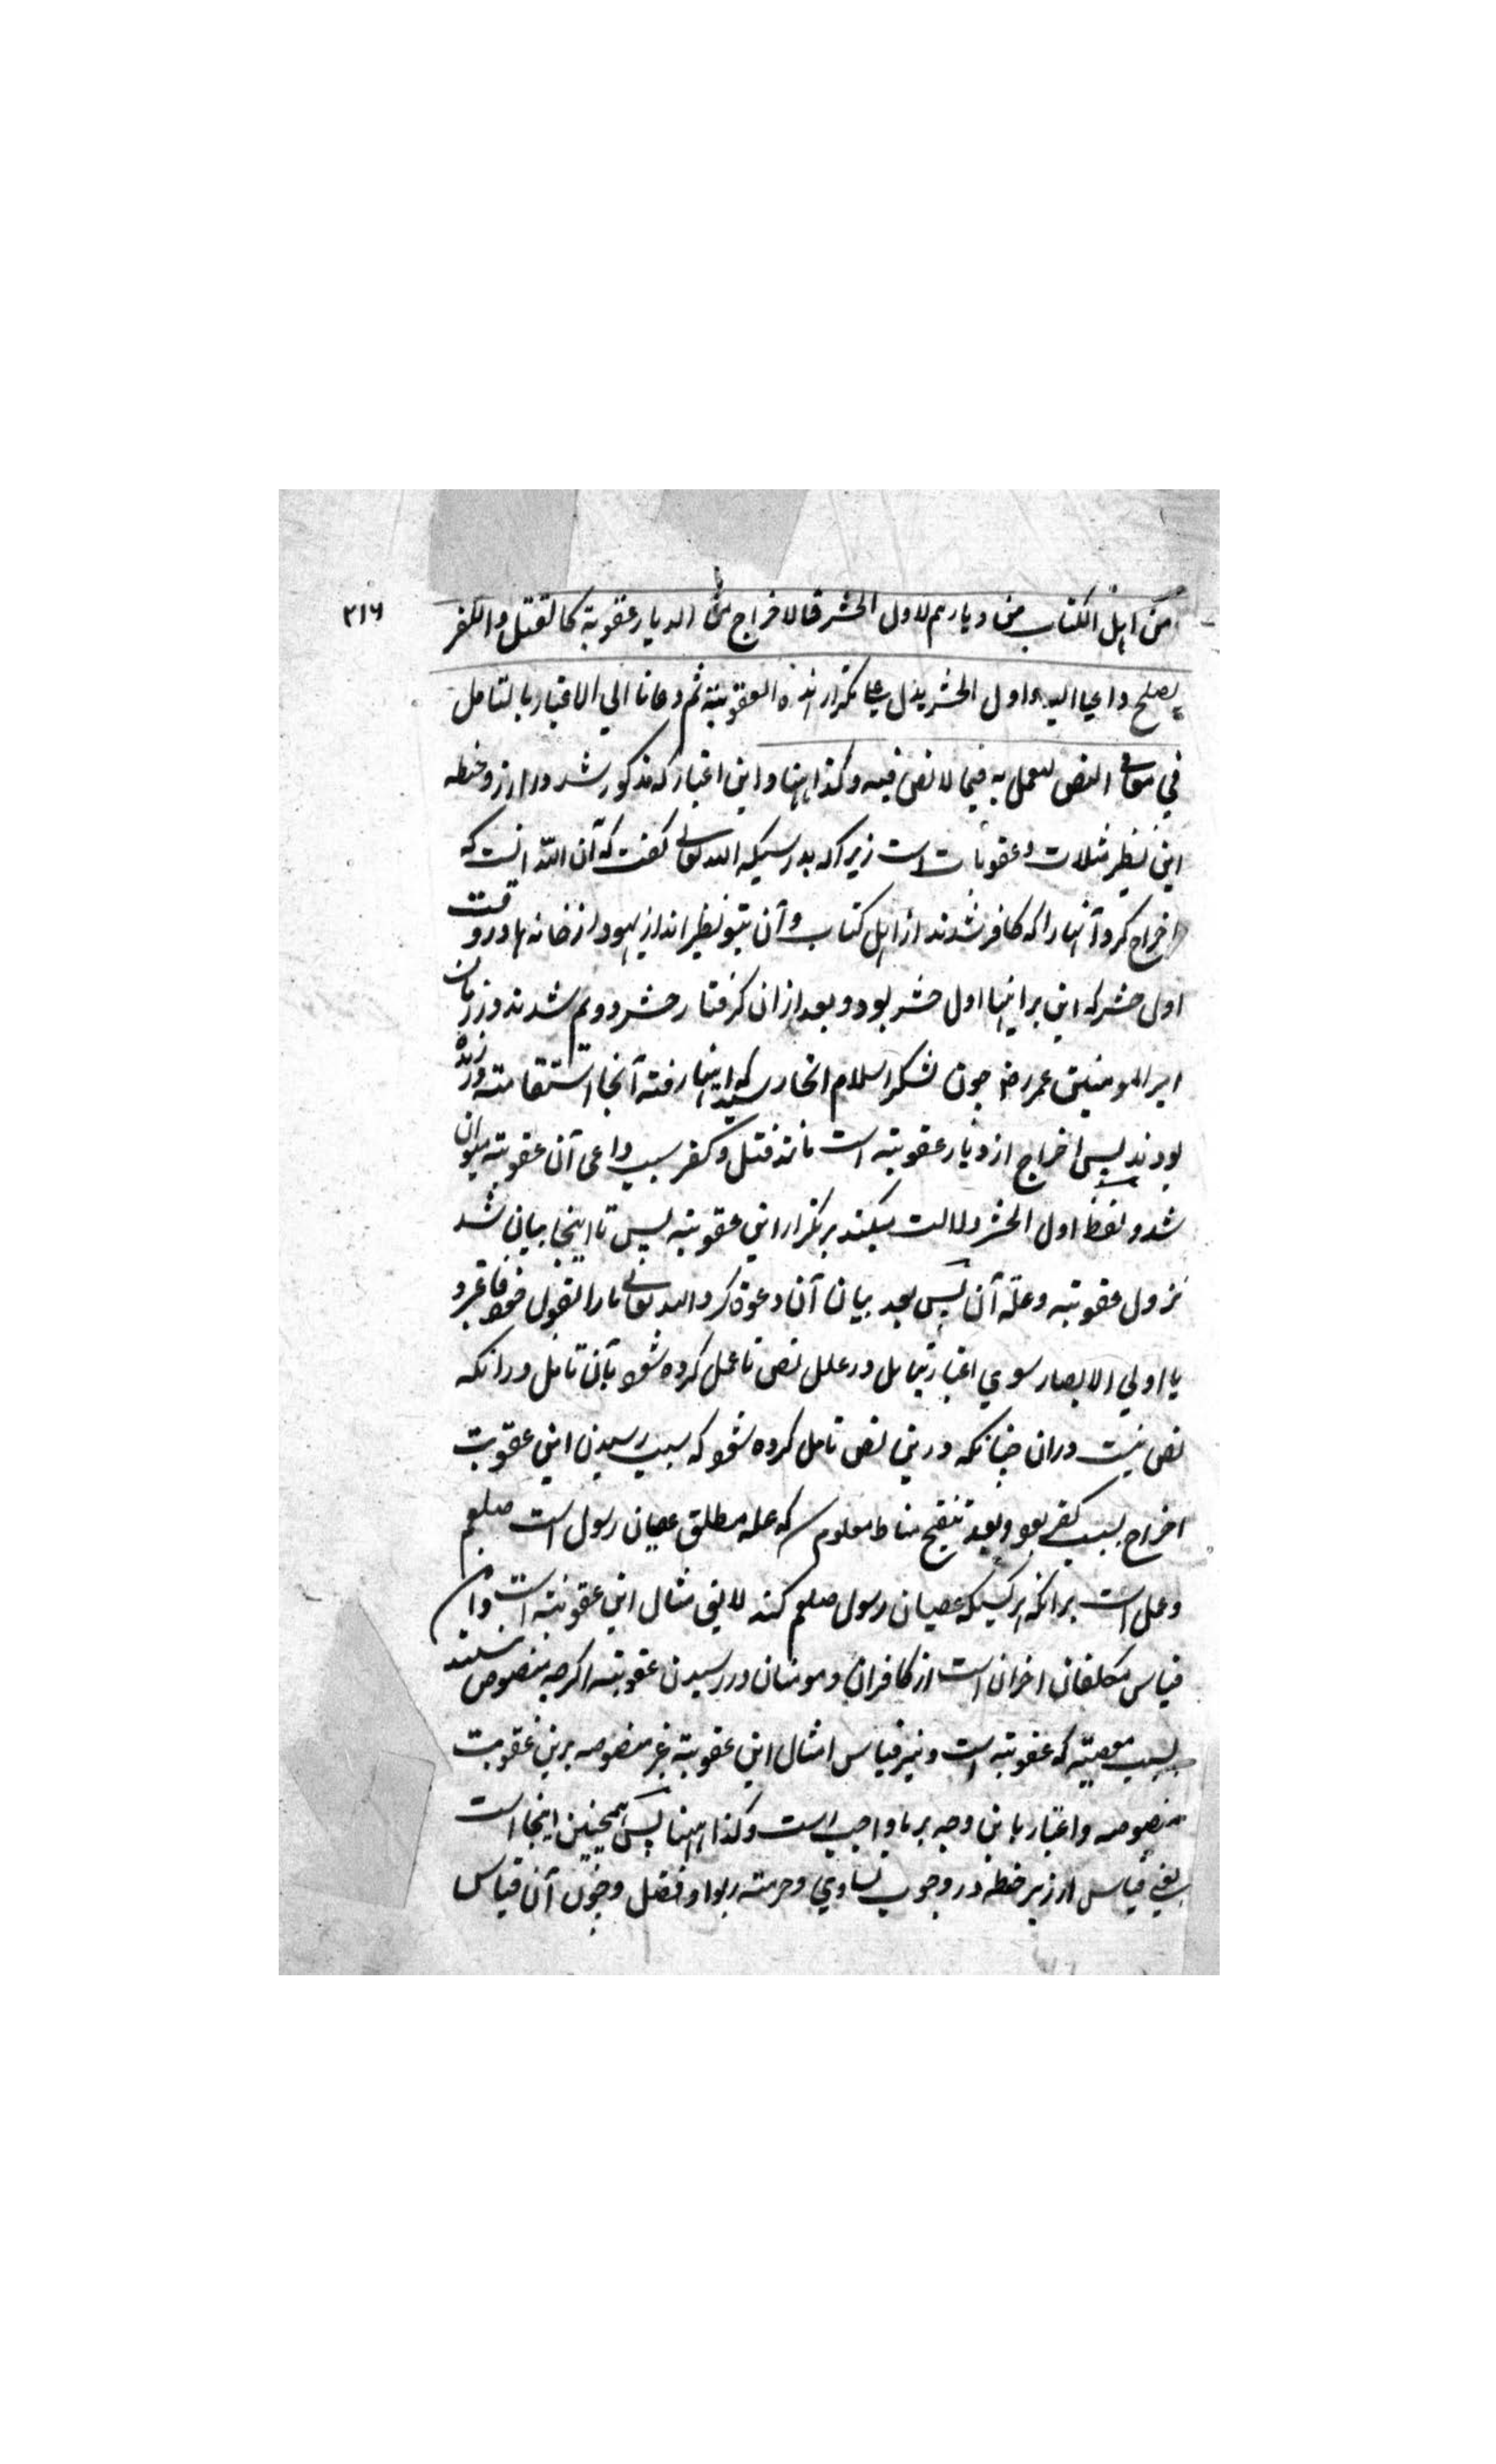 ۳۱۶
من اهل الکتاب من دیارهم لاول الحشر فالاخراج من الدیار عقوبة کالقتل والکفر
یصلح داعیا الیه واول الحشر یدل علی تکرار هذه العقوبة ثم دعانا الي الاعتبار بالتامل
في معانی النص للعمل به فیما لا نص فیه وکذا ههنا و این اعتبار که مذکور شد در ارز و حنطه
این نظیر مثلات و عقوبات است زیراکه بدرستیکه الله تعالی کفت که آن الله انست که
اخراج کرد آنها را که کافر شدند از اهل کتاب و آن بنو نظیر اند از یهود از خانه ها در وقت
اول حشر که این برای اینها اول حشر بود و بعد ازان کرفتار حشر دویم شدند در زمان
امیر المومنین عمر رض چون لشکر اسلام انجا رسید که اینها رفته آنجا استقامت ورزیده
بودند پس اخراج از دیار عقوبته است مانند قتل و کفر سبب داعی آن عقوبته میتوان
شد و لفظ اول الحشر دلالت میکند بر تکرار این عقوبته پس تا اینجا بیان شد
نزول عقوبته و علة آن پس بعد بیان آن دعوة کرد الله تعالی ما را بقول خود فاعتبروا
یا اولي الابصار سوي اعتبار بتامل در علل نص تا عمل کرده شود بآن تامل در انکه
نص نیست دران چنانکه درین نص تامل کرده شود که سبب رسیدن این عقوبت
اخراج بسبب کفر بود و بعد تنقیح مناط معلوم که علة مطلق عصیان رسول است صلعم
و عمل است برانکه هر کسیکه عصیان رسول صلعم کند لایق مثال این عقوبته است و ان
قیاس مکلفان اخران است از کافران و مومنان در رسیدن عقوبته اکرچه منصوص نیستند
بسبب معصیة که عقوبته است و نیز قیاس امثال این عقوبته غیر منصوصه برین عقوبت
منصوصه و اعتبار باین وجه بر ما واجب است وکذا ههنا پس همچنین اینجا است
یعنی قیاس ارز بر حنطه در وجوب تساوي و حرمته ربوا و فضل و چون آن قیاس